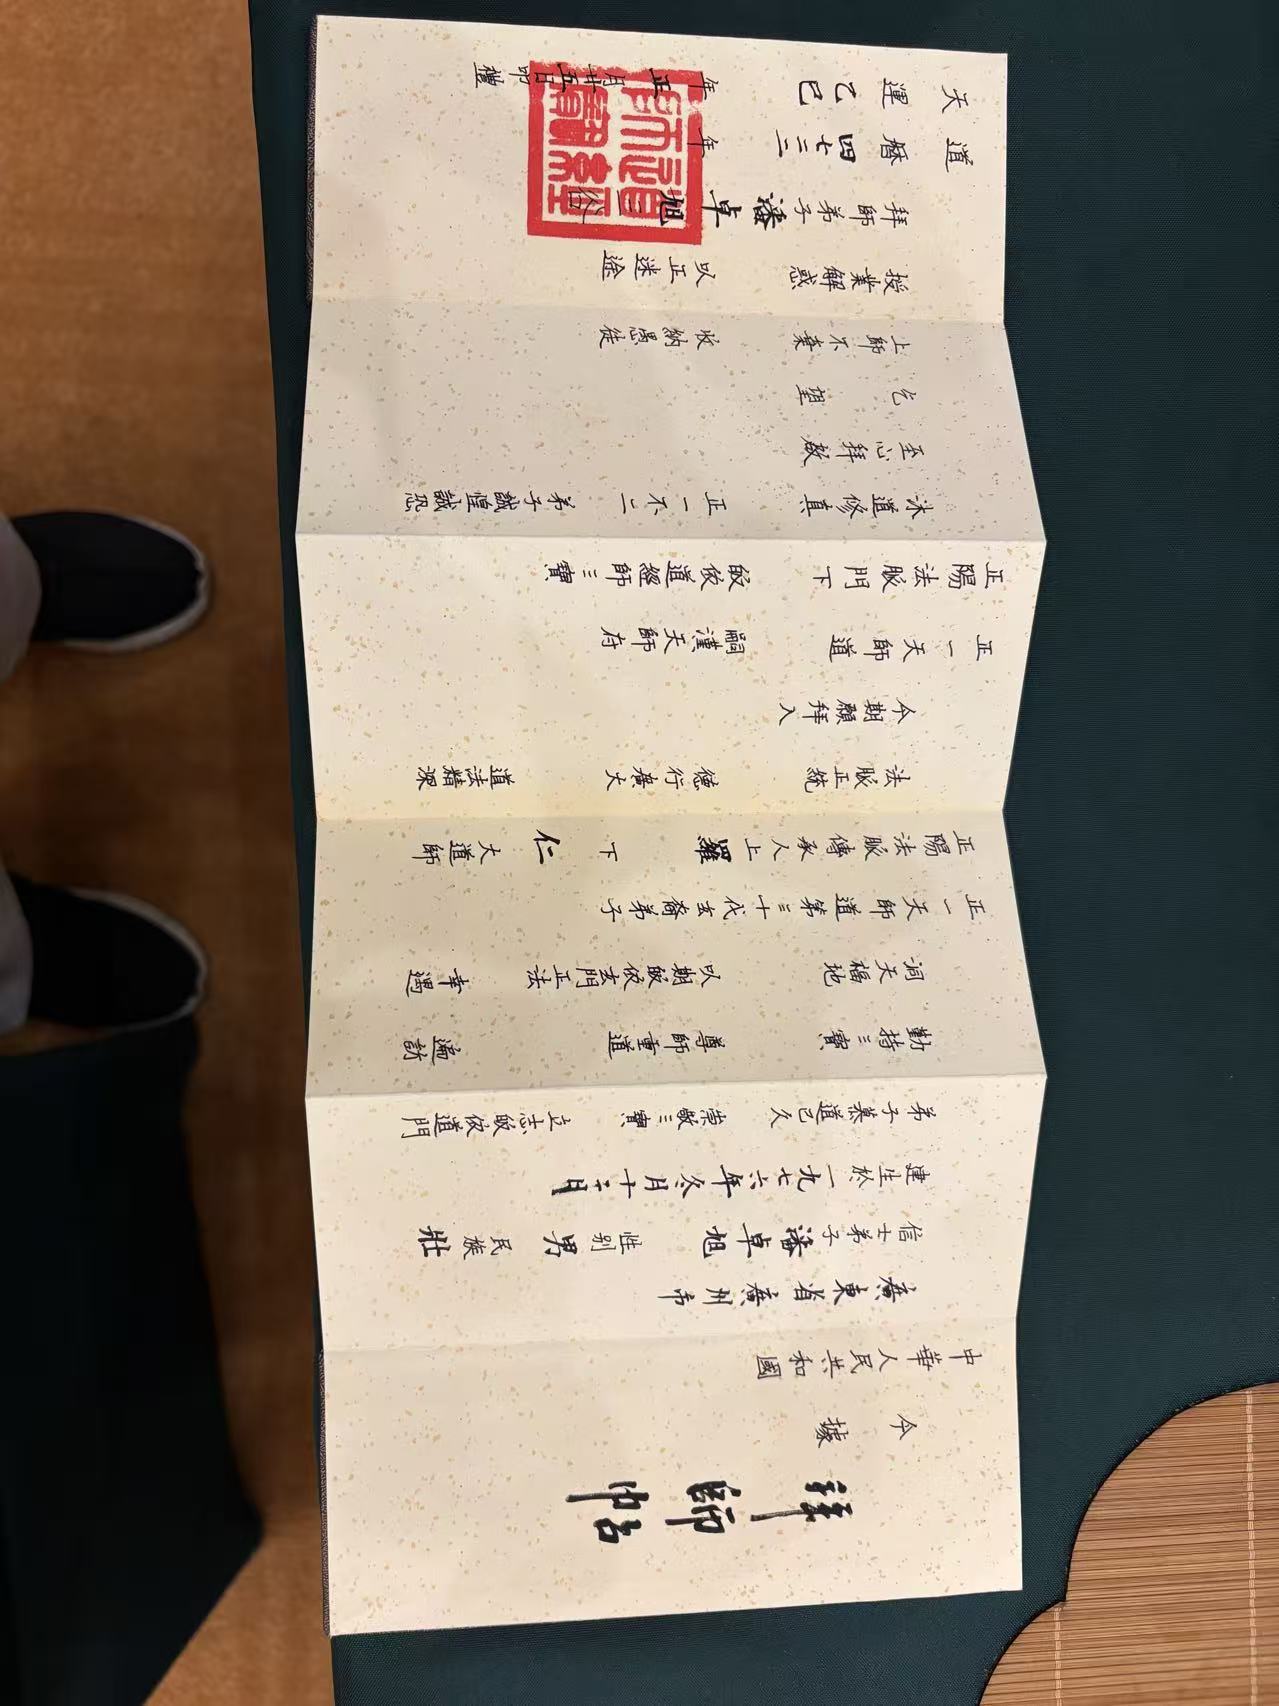 拜師帖
今據
中華人民共和國
廣東省廣州市
信士弟子潘卓旭 性別男 民族壯
建生於一九七六年冬月十二日
弟子慕道已久 崇敬三寶 立志皈依道門
勤持三寶 尊師重道 遍訪
洞天福地 以期皈依玄門正法 幸遇
正一天師道第三十代玄裔弟子
正陽法脈傳承人上羅下仁大道師
法脈正統 德行廣大 道法精深
今期願拜入
正一天師道 嗣漢天師府
正陽法脈門下 皈依道經師三寶
沐道修真 正一不二 弟子誠惶誠恐
至心拜啟
乞望
上師不棄 收納愚徒
授業解惑 以正迷途
拜師弟子潘卓旭
道曆四七二二年
天運乙巳年正月廿五日叩禮
道經師寶